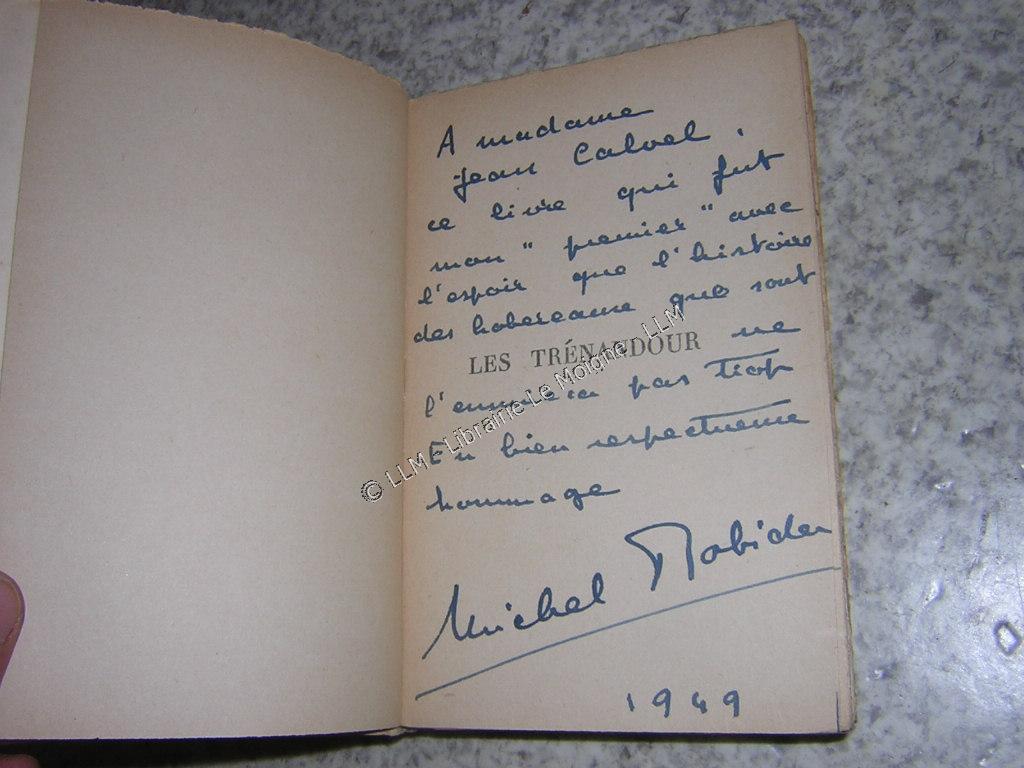 A madame
Jean Calvel,
ce livre qui fut
mon "premier" avec
l'espoir que l'histoire
des hobereaux que sont
LES TRÉNAUDOUR ne
l'ennuiera pas trop
En bien respectueux
hommage
Michel Robida
1949
© LLM - Librairie Le Moigne - LLM